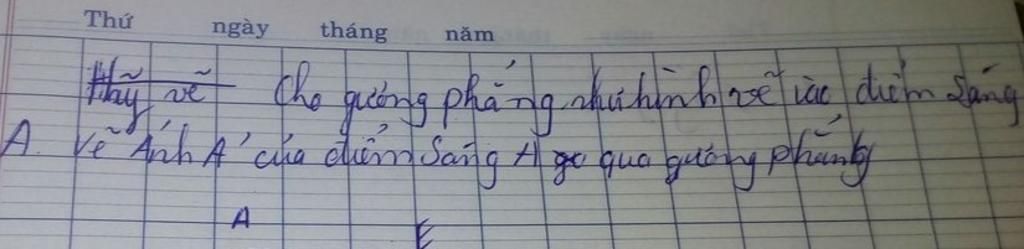 Thứ ngày tháng năm
Hãy vẽ Cho gương phẳng như hình vẽ các điểm sáng
A. Vẽ Ảnh A' của điểm sáng A qua gương phẳng
A